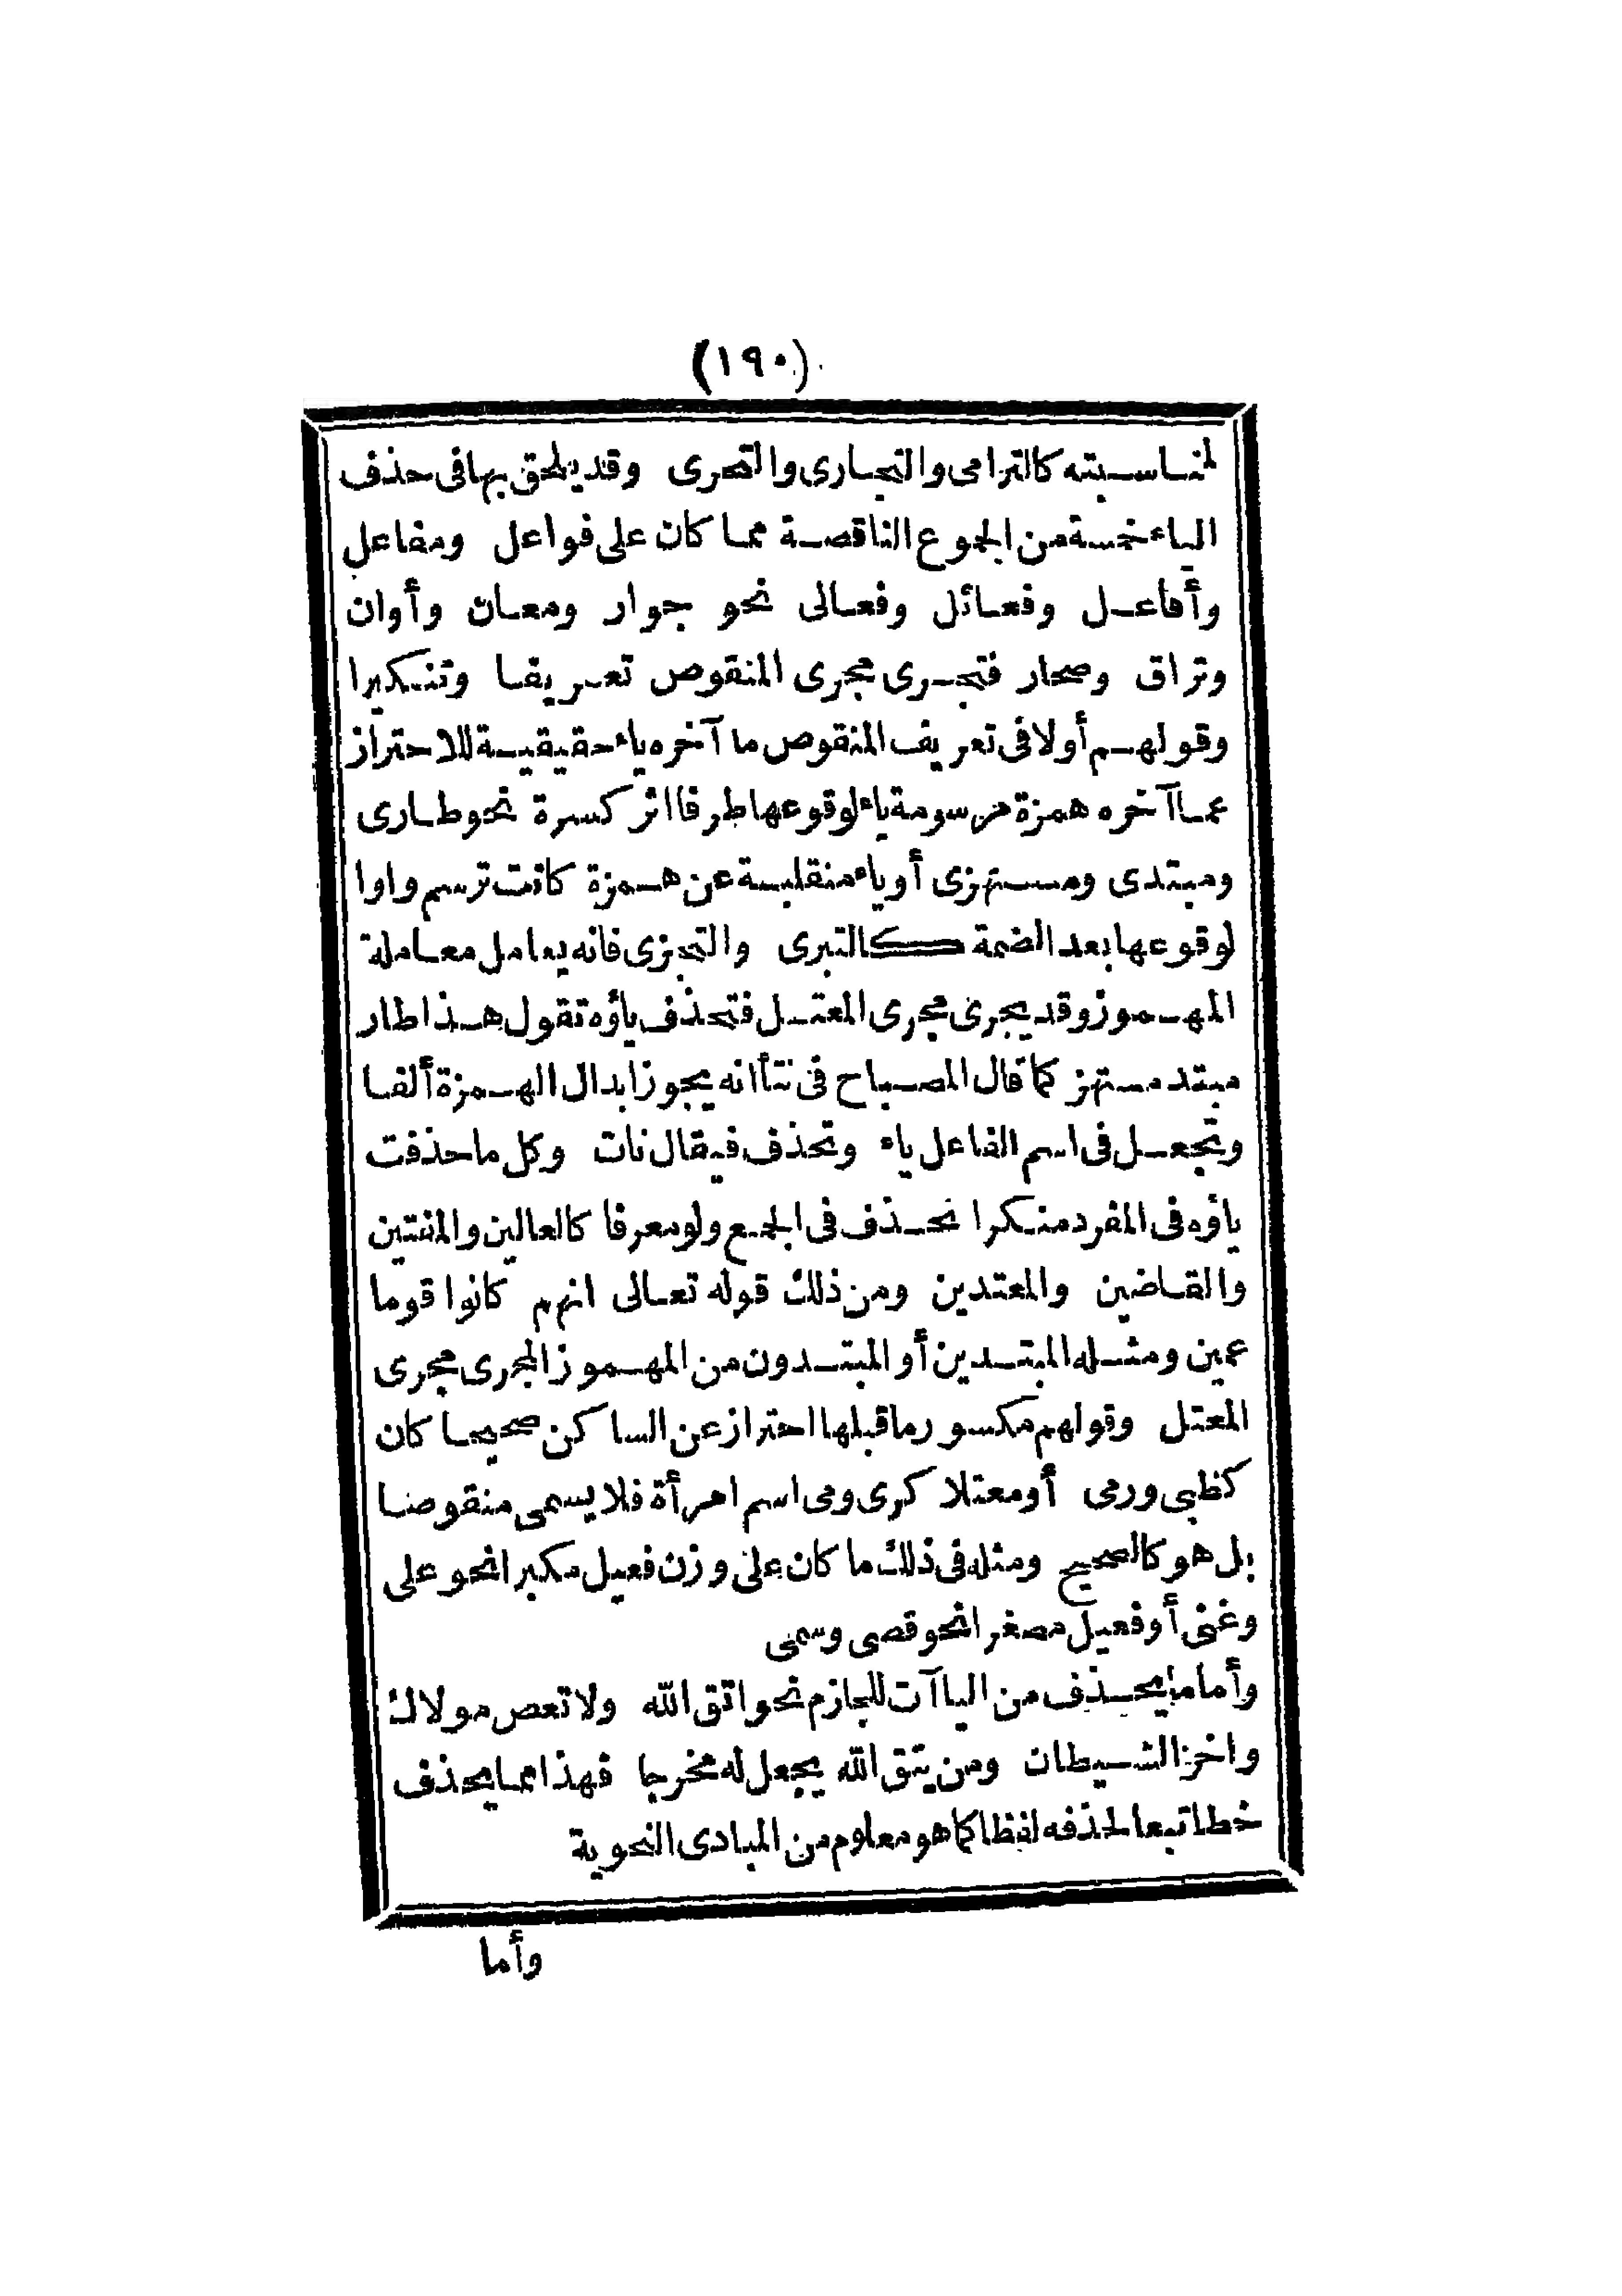 (١٩٠)
لمناسبته كالترامى والتجارى والتحرى وقد يلحق بها فى حذف
الياء خمسة من الجوع الناقصة مما كان على فواعل ومفاعل
وأفاعل وفعائل وفعالى نحو جوار ومعان وأوان
وتراق وصحار فتجرى مجرى المنقوص تعريفا وتنكيرا
وقولهم أولا فى تعريف المنقوص ما آخره ياء حقيقية للاحتراز
عما آخره همزة مرسومة ياء لوقوعها طرفا اثر كسرة نحو طارى
ومبتدى ومستهزى أو ياء منقلبة عن همزة كانت ترسم واوا
لوقوعها بعد الضمة كالتبرى والتجزى فانه يعامل معاملة
المهموز وقد يجرى مجرى المعتل فتحذف ياؤه تقول هذا طار
مبتد مستهز كما قال المصباح فى نتأ انه يجوز ابدال الهمزة ألفا
وتجعل فى اسم الفاعل ياء وتحذف فيقال نات وكل ما حذفت
ياؤه فى المفرد منكرا تحذف فى الجمع ولو معرفا كالعالين والمفتين
والقاضين والمعتدين ومن ذلك قوله تعالى انهم كانوا قوما
عمين ومثله المبتدين أو المبتدون من المهموز المجرى مجرى
المعتل وقولهم مكسور ما قبلها احتراز عن الساكن صحيحا كان
كظبى ورمى أو معتلا كرى ومى اسم امرأة فلا يسمى منقوصا
بل هو كالصحيح ومثله فى ذلك ما كان على وزن فعيل مكبرا نحو على
وغنى أو فعيل مصغرا نحو قصى وسمى
وأما ما يحذف من الياآت للجازم نحو اتق الله ولا تعص مولاك
واخز الشيطان ومن يتق الله يجعل له مخرجا فهذا مما يحذف
خطا تبعا لحذفه لفظا كما هو معلوم من المبادى النحوية
وأما